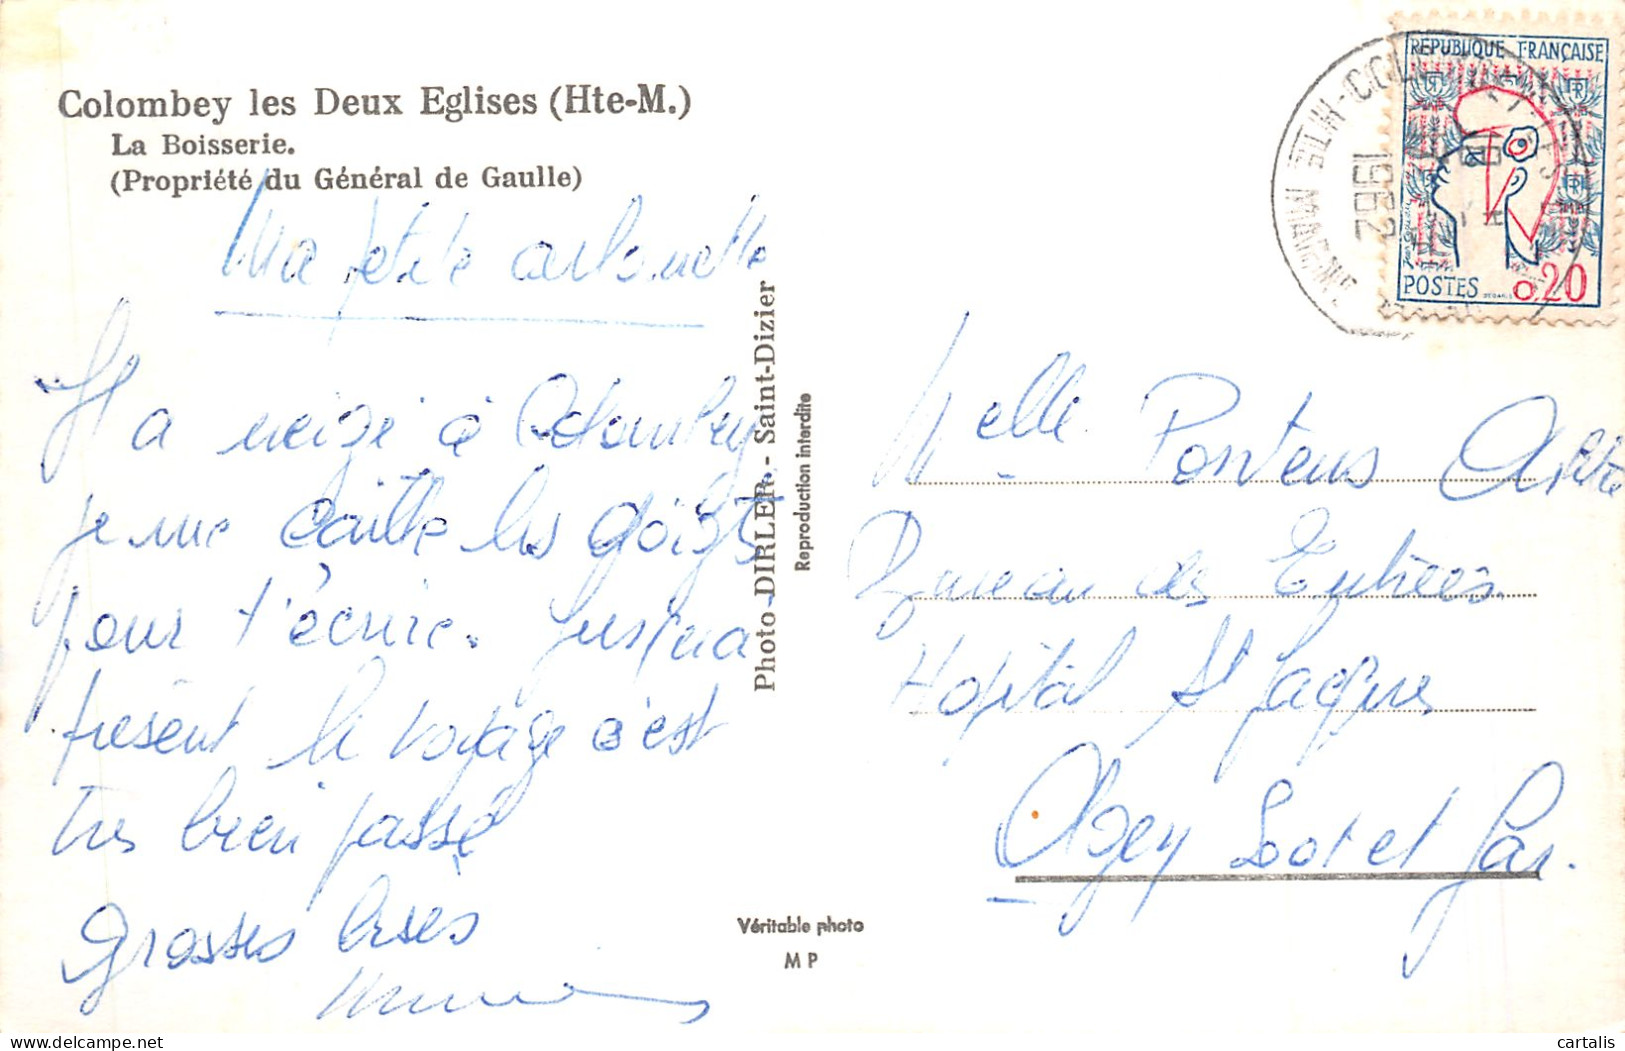 Colombey les Deux Eglises (Hte-M.)
La Boisserie.
(Propriété du Général de Gaulle)
Ma petite
Il a neigé à Colombey
je me caille les doigts
pour t'écrire. Jusqu'a
présent le voyage s'est
très bien passé
grosses bises
Photo DIRLER - Saint-Dizier
Reproduction interdite
Véritable photo
MP
REPUBLIQUE FRANÇAISE
POSTES 0,20
HTE MARNE
1962
Melle Pontens
Bureau des Entrées
Hopital St Jacques
Agen Lot et Gar.
delcampe.net
cartalis